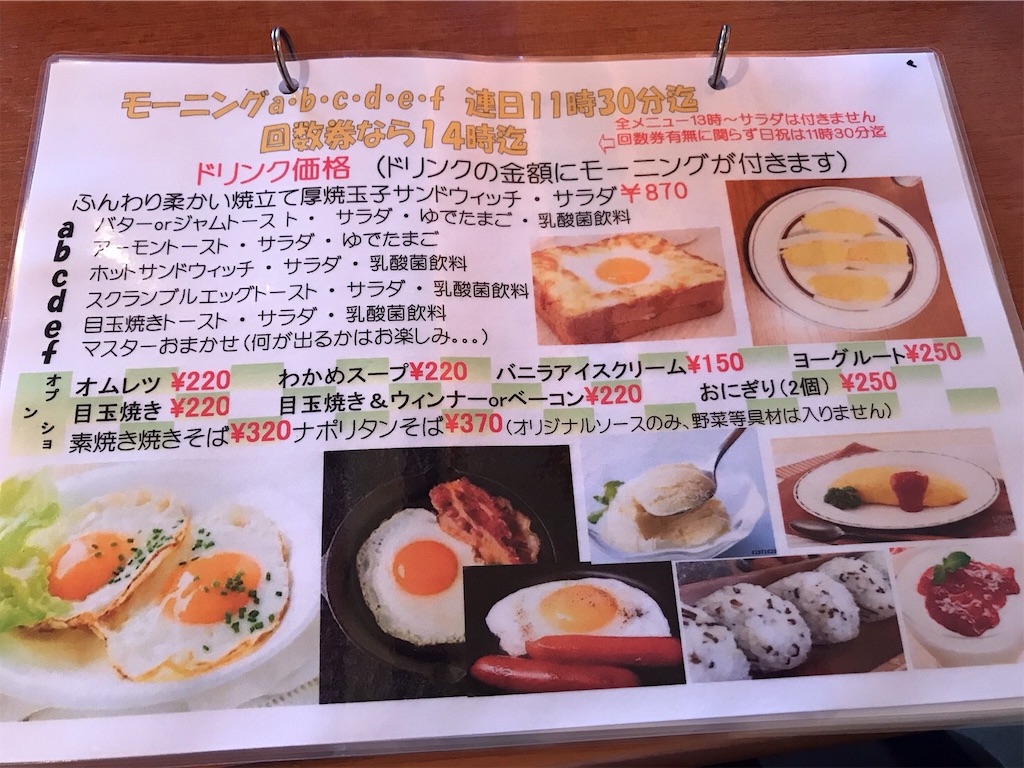 モーニングa・b・c・d・e・f 連日11時30分迄
回数券なら14時迄
全メニュー13時～サラダは付きません
⇦回数券有無に関らず日祝は11時30分迄
ドリンク価格 (ドリンクの金額にモーニングが付きます)
ふんわり柔かい焼立て厚焼玉子サンドウィッチ・サラダ¥870
a バターorジャムトースト・サラダ・ゆでたまご・乳酸菌飲料
b アーモントースト・サラダ・ゆでたまご
c ホットサンドウィッチ・サラダ・乳酸菌飲料
d スクランブルエッグトースト・サラダ・乳酸菌飲料
e 目玉焼きトースト・サラダ・乳酸菌飲料
f マスターおまかせ(何が出るかはお楽しみ。。。)
オプション
オムレツ ¥220 わかめスープ¥220 バニラアイスクリーム¥150 ヨーグルート¥250
目玉焼き ¥220 目玉焼き＆ウィンナーorベーコン¥220 おにぎり(2個) ¥250
素焼き焼きそば¥320ナポリタンそば¥370(オリジナルソースのみ、野菜等具材は入りません)